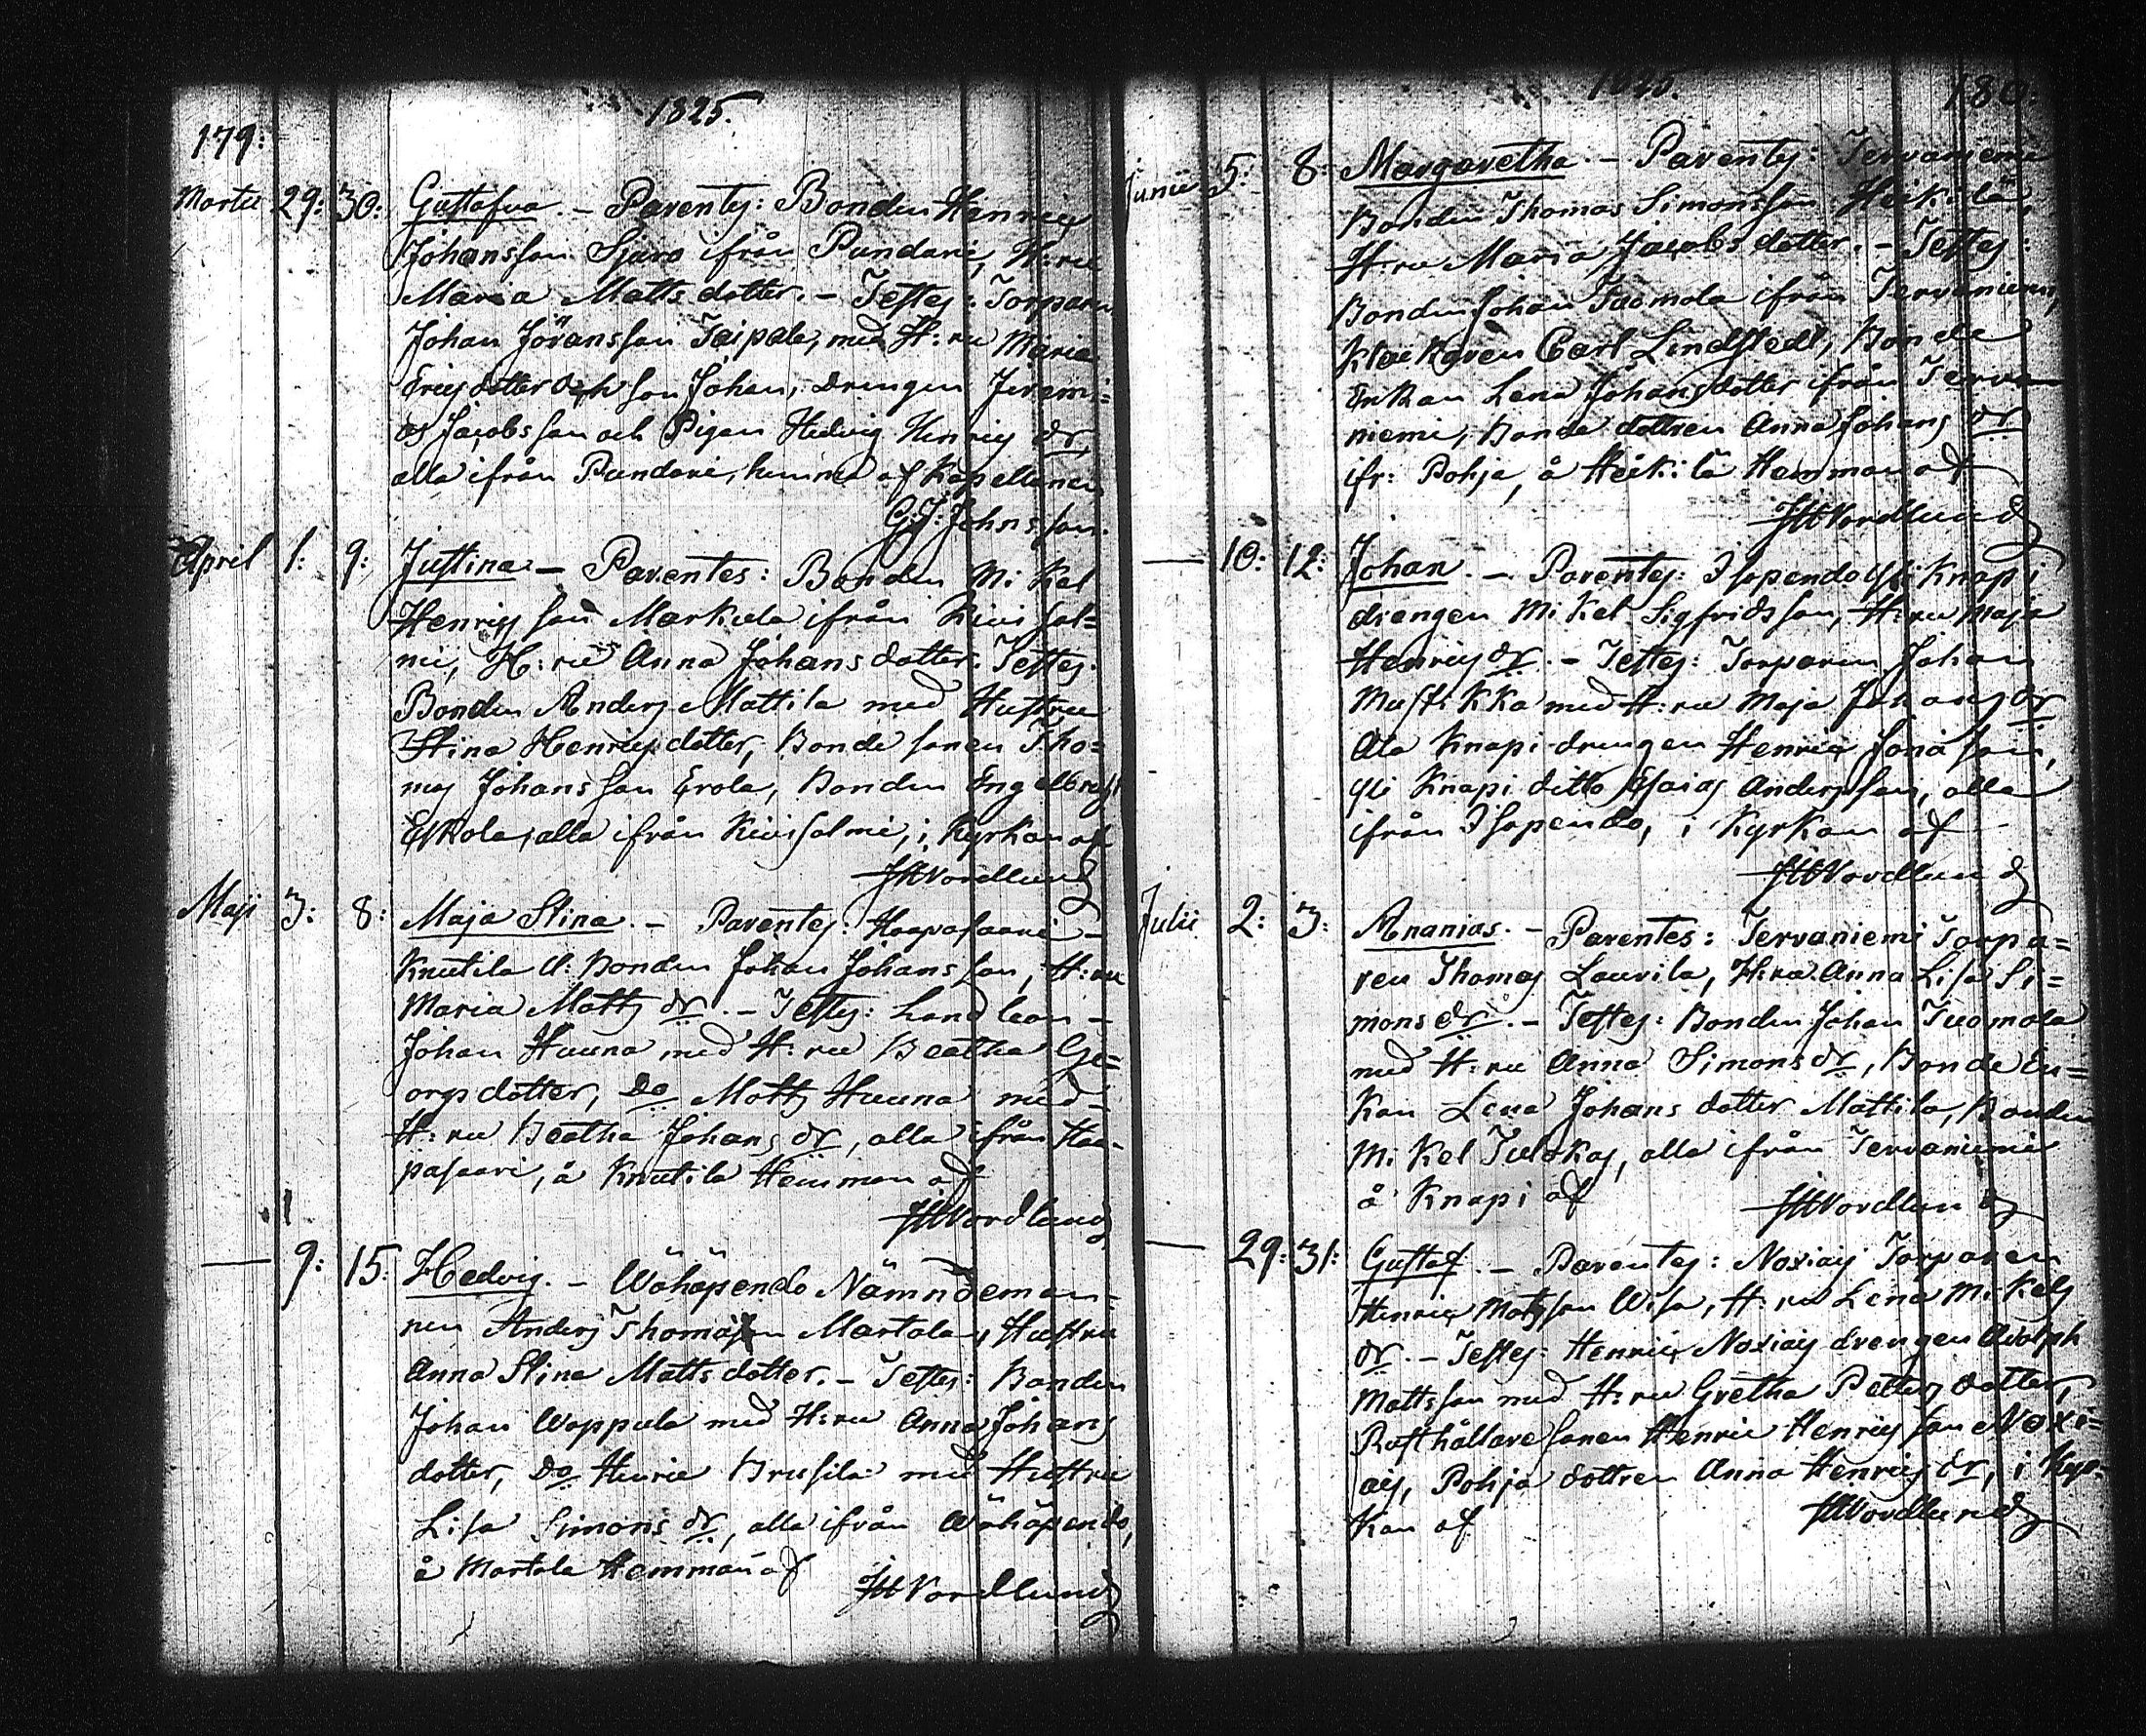 1825.
179:
Martii 29: 30: Gustafva. – Parentes: Bonden Henric
Johansson Sjaro ifrån Pundari, H:ru
Maria Mattsdotter. – Testes: Torparen
Johan Jöransson Taipale, med H:ru Maria
Ericsdotter och son Johan, Drengen Jeremi=
as Jacobsson och Pigan Hedvig Henrics dr,
alla ifrån Pundari, hemma af Kapellanen
G: J: Johnsson.
April 1: 9: Justina. – Parentes: Bonden Mikel
Henricsson Markula ifrån Kivisal=
mi, H:ru Anna Johansdotter. Testes.
Bonden Anders Mattila med Hustru
Stina Henricsdotter, Bonde sonen Tho=
mas Johansson Erola, Bonden Engelbrecht
Eskola, alla ifrån Kivisalmi, i Kyrkan af
JHNordlund
Maji 3: 8: Maja Stina. – Parentes: Haapasaari –
Knutila Bonden Johan Johansson, H:ru
Maria Matts dr. – Testes: Landbon –
Johan Huuna med H:ru Beatha Ge=
orgsdotter, Do Matts Huuna med
H:ru Beatha Johans dr, alla ifrån Haa-
pasaari, å Knutila Hemman af
JHNordlund
— 9: 15: Hedvig. – Wähäpendo Nämndeman-
nen Anders Thomasson Martala, Hustru
Anna Stina Mattsdotter. – Testes: Bonden
Johan Woppula med H:ru Anna Johans
dotter, Do Henric Brusila med Hustru
Lisa Simons dr, alla ifrån Wähäpendo,
å Martala Hemman af
JHNordlund
1825.
180.
Junii 5: 8: Margaretha. – Parentes: Tervaniemi
Bonden Thomas Simonsson Heikilä,
H:ru Maria Jacobsdotter. – Testes:
Bonden Johan Tuomola ifrån Tervaniemi,
Klockaren Carl Lindstedt, Bonde
Enkan Lena Johansdotter ifrån Terva
niemi, Bonde dottren Anna Johans dr
ifr: Pohja, å Heikilä Hemman af
JHNordlund
— 10: 12: Johan. – Parentes: Isopendo Yli Knapi
drengen Mikel Sigfridsson, H:ru Maja
Henrics dr. – Testes: Torparen Johan
Mustikka med H:ru Maja Johans dr
Ala Knapi drengen Henric Jonasson,
Yli Knapi ditto Esaias Andersson, alla
ifrån Isopendo, i Kyrkan af
JHNordlund
Julii 2: 3: Ananias. – Parentes: Tervaniemi Torpa=
ren Thomas Laurila, H:ru Anna Lisa Si=
mons dr. – Testes: Bonden Johan Tuomola
med H:ru Anna Simons dr, Bonde En=
kan Lena Johans dotter Mattila, Bonden
Mikel Tulokas, alla ifrån Tervaniemi
å Knapi af JHNordlund
— 29: 31: Gustaf. – Parentes: Noxiais Torparen
Henric Matsson Wisa, H:ru Lena Mikels
dr. – Testes: Henric Noxiais drengen Adolph
Mattsson med H:ru Gretha Petters dotter,
Rusthållare sonen Henric Henricsson Noxi=
ais, Pohja dottren Anna Henrics dr, i Kyr-
kan af JHNordlund